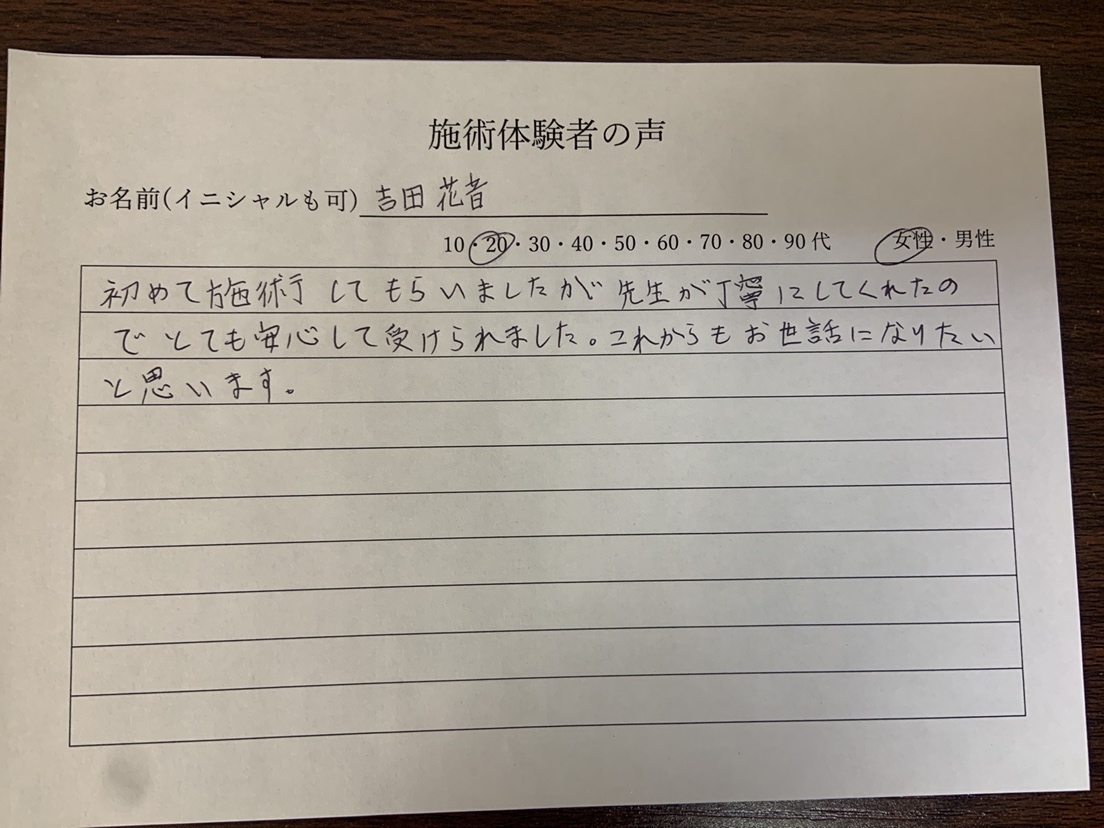 施術体験者の声
お名前(イニシャルも可) 吉田 花音
10・20・30・40・50・60・70・80・90代 女性・男性
初めて施術してもらいましたが先生が丁寧にしてくれたの
でとても安心して受けられました。これからもお世話になりたい
と思います。